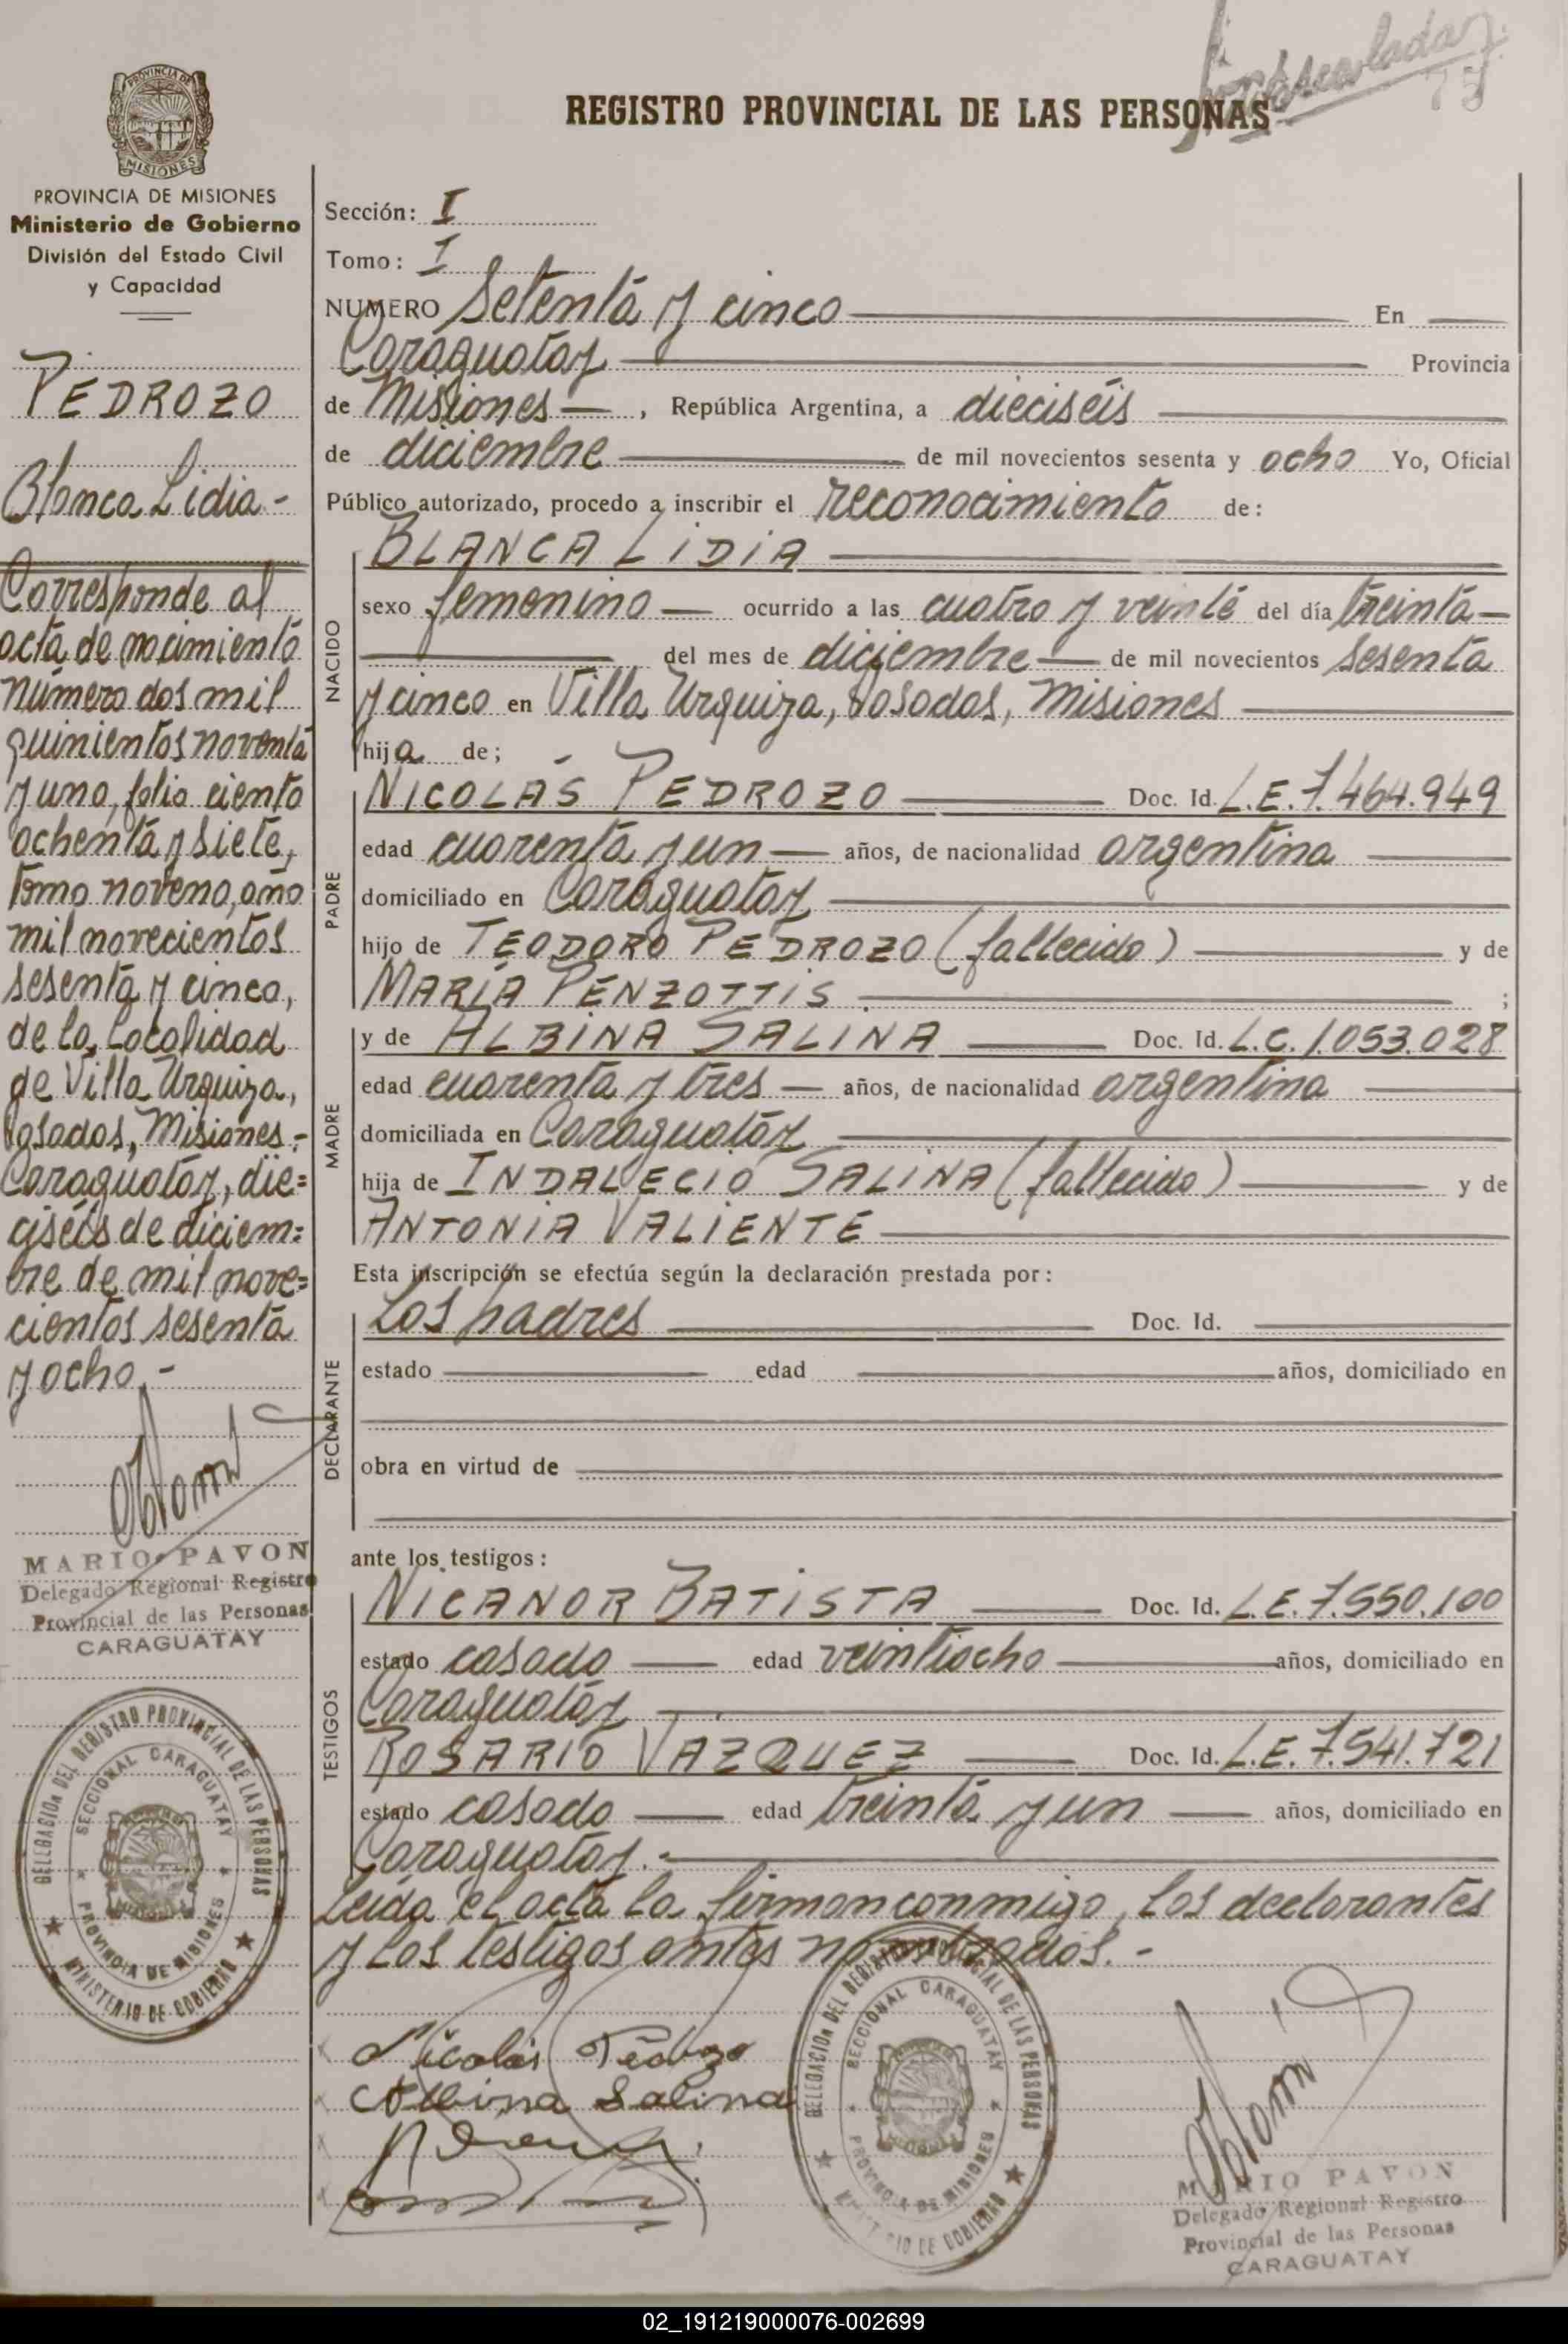 75
REGISTRO PROVINCIAL DE LAS PERSONAS
PROVINCIA DE
MISIONES
PROVINCIA DE MISIONES
Ministerio de Gobierno
División del Estado Civil
y Capacidad
PEDROZO
Blanca Lidia.-
Corresponde al
acta de nacimiento
número dos mil
quinientos noventa
y uno, folio ciento
ochenta y siete,
tomo noveno, año
mil novecientos
sesenta y cinco,
de la localidad
de Villa Urquiza,
Posadas, Misiones.-
Caraguatay, die=
ciséis de diciem=
bre de mil nove=
cientos sesenta
y ocho.-
MARIO PAVON
Delegado Regional Registro
Provincial de las Personas
CARAGUATAY
DELEGACION DEL REGISTRO PROVINCIAL DE LAS PERSONAS
SECCIONAL CARAGUATAY
PROVINCIA DE MISIONES
MINISTERIO DE GOBIERNO
Sección: I
Tomo: I
NUMERO Setenta y cinco En
Caraguatay Provincia
de Misiones , República Argentina, a dieciséis
de diciembre de mil novecientos sesenta y ocho Yo, Oficial
Público autorizado, procedo a inscribir el reconocimiento de:
NACIDO
BLANCA LIDIA
sexo femenino ocurrido a las cuatro y veinte del día treinta
del mes de diciembre de mil novecientos sesenta
y cinco en Villa Urquiza, Posadas, Misiones
hija de;
PADRE
NICOLÁS PEDROZO Doc. Id. L.E. 7.464.949
edad cuarenta y un años, de nacionalidad argentina
domiciliado en Caraguatay
hijo de TEODORO PEDROZO (fallecido) y de
MARÍA PENZOTTIS ;
MADRE
y de ALBINA SALINA Doc. Id. L.C. 1.053.028
edad cuarenta y tres años, de nacionalidad argentina
domiciliada en Caraguatay
hija de INDALECIO SALINA (fallecido) y de
ANTONIA VALIENTE
Esta inscripción se efectúa según la declaración prestada por:
DECLARANTE
Los padres Doc. Id.
estado edad años, domiciliado en
obra en virtud de
ante los testigos:
TESTIGOS
NICANOR BATISTA Doc. Id. L.E. 7.550.100
estado casado edad veintiocho años, domiciliado en
Caraguatay
ROSARIO VAZQUEZ Doc. Id. L.E. 7.541.721
estado casado edad treinta y un años, domiciliado en
Caraguatay.-
Leída el acta la firman conmigo, los declarantes
y los testigos antes nombrados.-
Nicolás Pedrozo
Albina Salina
DELEGACION DEL REGISTRO PROVINCIAL DE LAS PERSONAS
SECCIONAL CARAGUATAY
PROVINCIA DE MISIONES
MINISTERIO DE GOBIERNO
MARIO PAVON
Delegado Regional Registro
Provincial de las Personas
CARAGUATAY
02_191219000076-002699